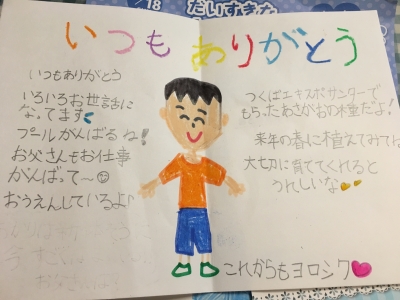 /18
だいすきな
いつもありがとう
いつもありがとう
いろいろお世話に
なってます
プールがんばるね!
お父さんもお仕事
がんばって〜☺
おうえんしているよ♪
つくばエキスポセンターで
もらったあさがおの種だよ!
来年の春に植えてみてね
大切に育ててくれると
うれしいな
これからもヨロシク